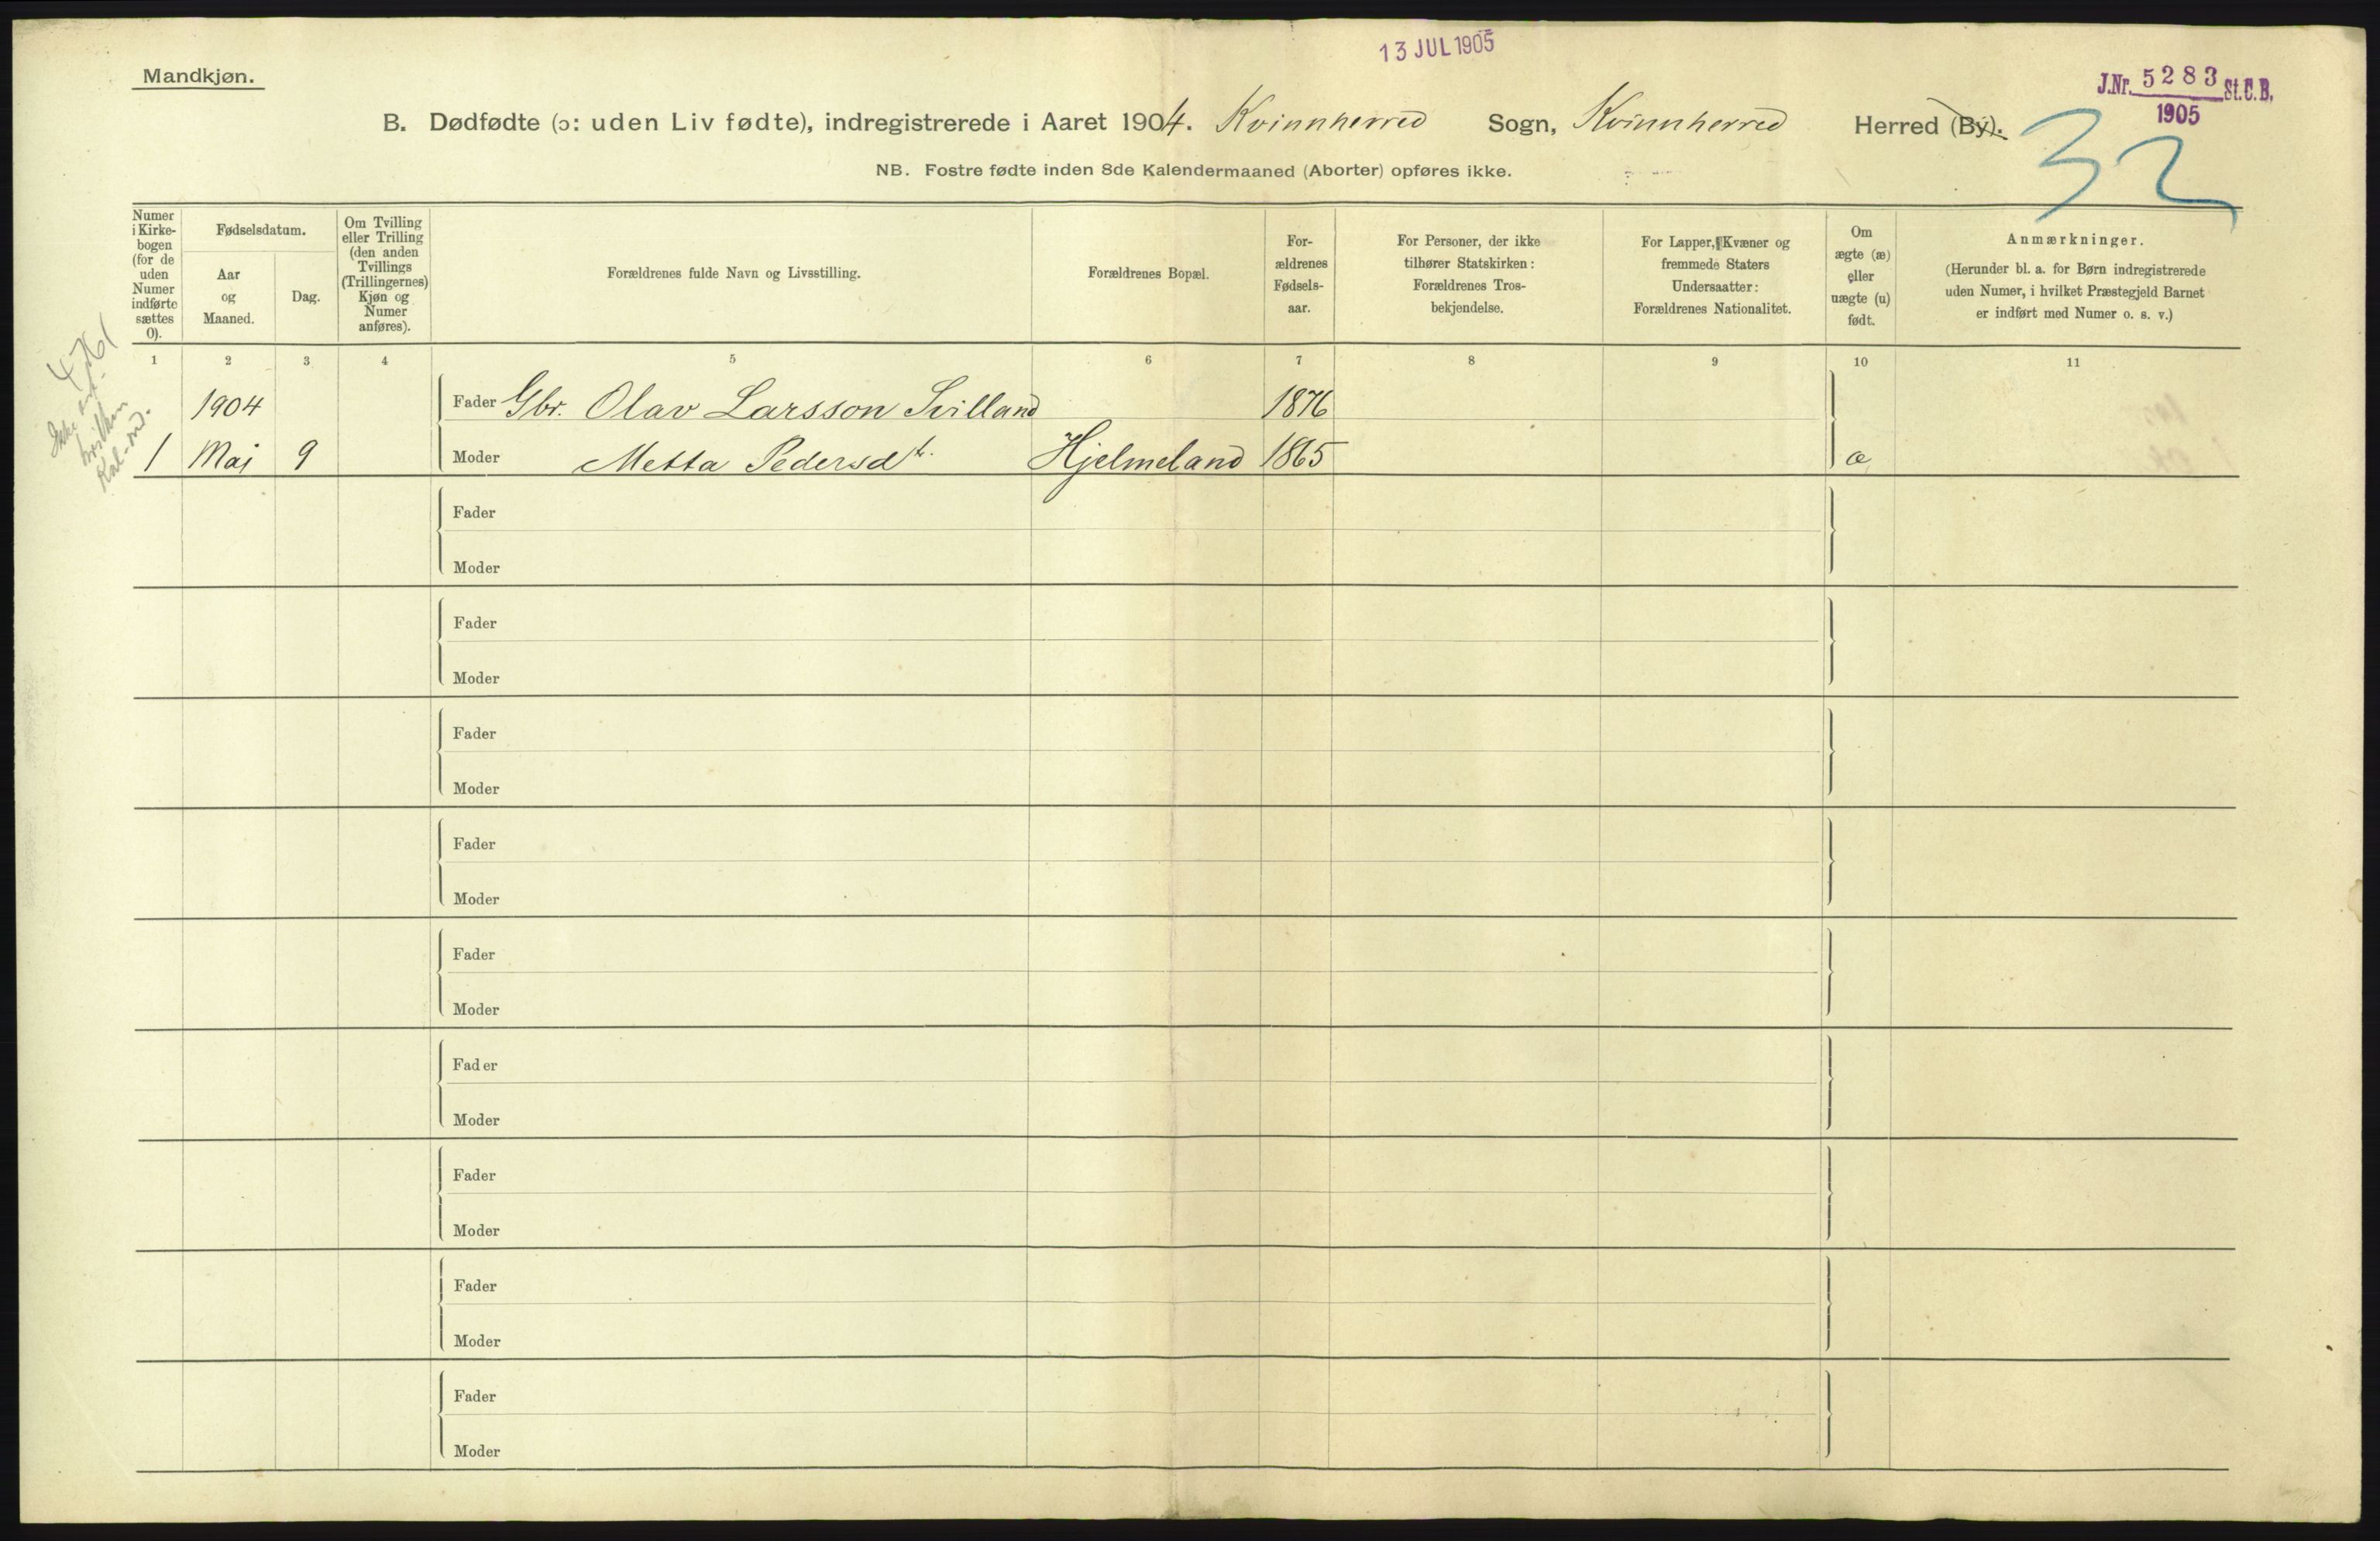 13 JUL 1905
Mandkjøn.
J.Nr. 5283 St.C.B.
1905
B. Dødfødte (ɔ: uden Liv fødte), indregistrerede i Aaret 1904. Kvinnherred Sogn, Kvinnherred Herred (By).
32
NB. Fostre fødte inden 8de Kalendermaaned (Aborter) opføres ikke.
Numer
i Kirke-
bogen
(for de
uden
Numer
indførte
sættes
0).
Fødselsdatum.
Aar
og
Maaned.
Dag.
Om Tvilling
eller Trilling
(den anden
Tvillings
(Trillingernes)
Kjøn og
Numer
anføres).
Forældrenes fulde Navn og Livsstilling.
Forældrenes Bopæl.
For-
ældrenes
Fødsels-
aar.
For Personer, der ikke
tilhører Statskirken:
Forældrenes Tros-
bekjendelse.
For Lapper, Kvæner og
fremmede Staters
Undersaatter:
Forældrenes Nationalitet.
Om
ægte (æ)
eller
uægte (u)
født.
Anmærkninger.
(Herunder bl. a. for Børn indregistrerede
uden Numer, i hvilket Præstegjeld Barnet
er indført med Numer o. s. v.)
1 2 3 4 5 6 7 8 9 10 11
4761
Ikke
hvilken
1904 Fader Gbr. Olav Larsson 1876
1 Mai 9 Moder Metta Pedersdt. Hjelmeland 1865 æ
Fader
Moder
Fader
Moder
Fader
Moder
Fader
Moder
Fader
Moder
Fader
Moder
Fader
Moder
Fader
Moder
Fader
Moder